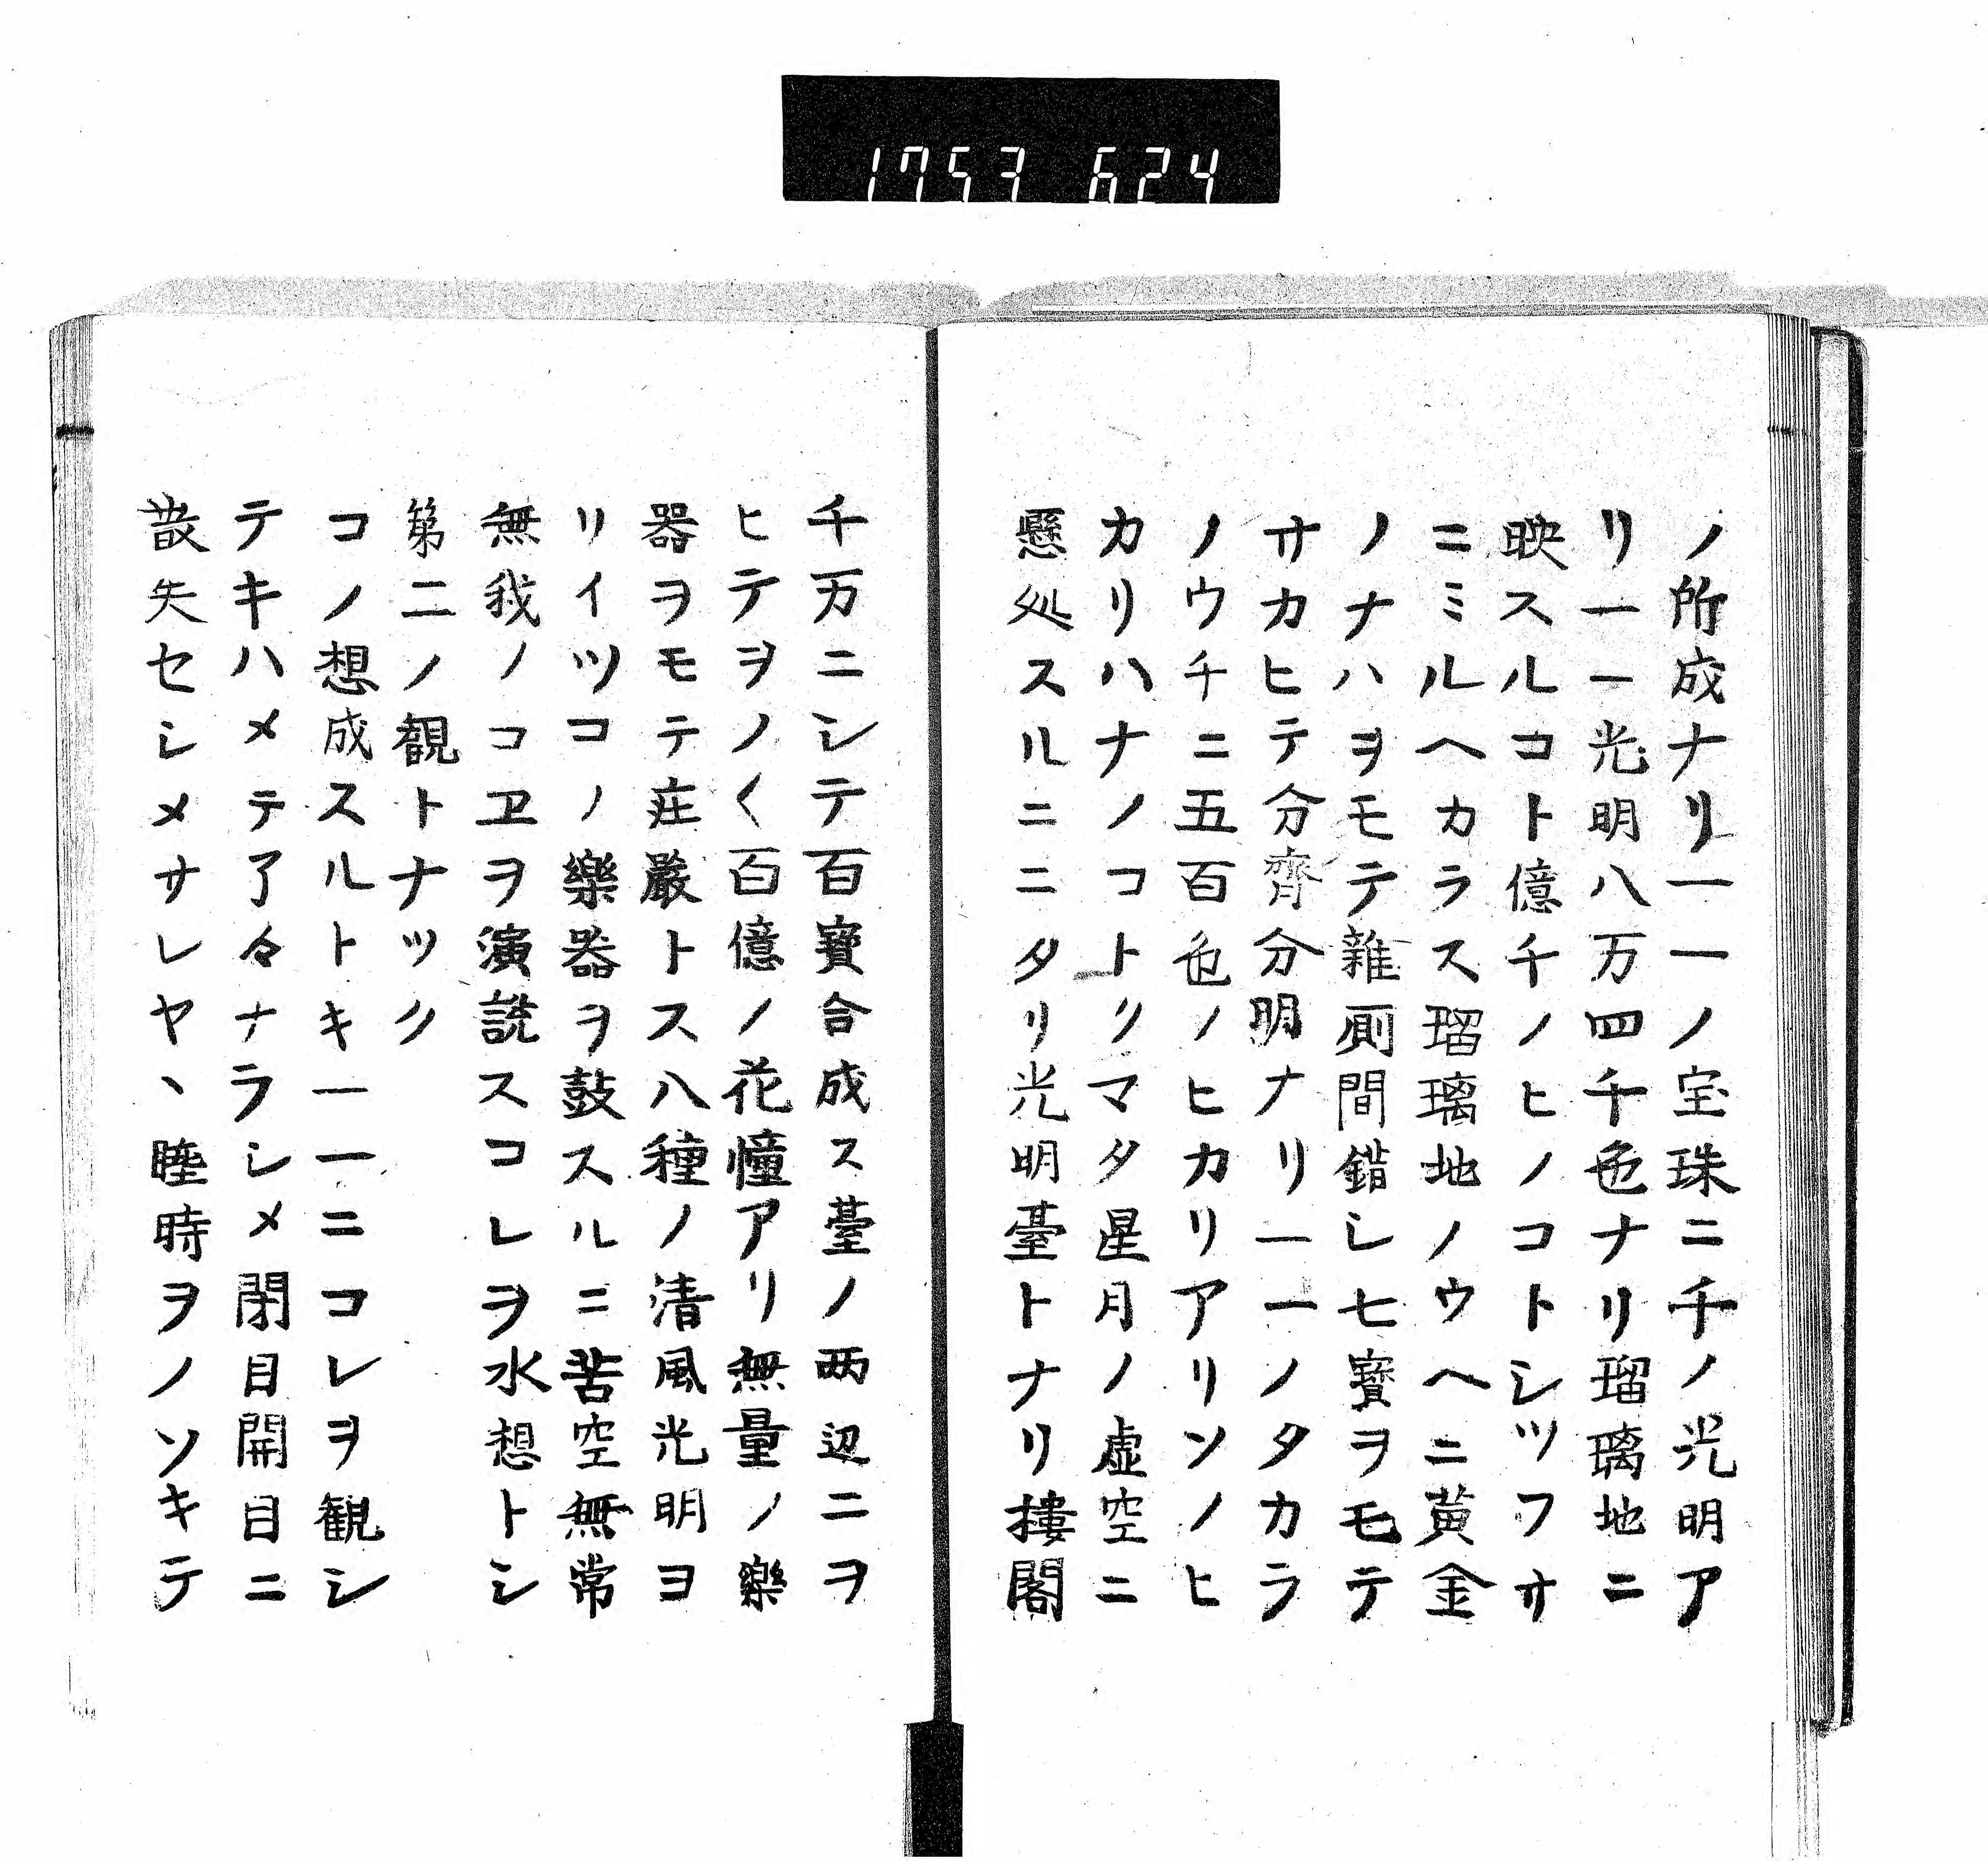 1753 624
ノ所成ナリ一一ノ宝珠ニ千ノ光明ア
リ一一光明八万四千色ナリ瑠璃地ニ
映スルコト億千ノヒノコトシツフサ
ニミルヘカラス瑠璃地ノウヘニ黄金
ノナハヲモテ雜厠間錯シ七寳ヲモテ
サカヒテ分齊分明ナリ一一ノタカラ
ノウチニ五百色ノヒカリアリソノヒ
カリハナノコトクマタ星月ノ虚空ニ
懸処スルニニタリ光明臺トナリ樓閣
千万ニシテ百寳合成ス臺ノ两辺ニヲ
ヒテヲノ〱百億ノ花幢アリ無量ノ樂
器ヲモテ庄嚴トス八種ノ清風光明ヨ
リイツコノ樂器ヲ鼓スルニ苦空無常
無我ノコヱヲ演説スコレヲ水想トシ
第二ノ観トナツク
コノ想成スルトキ一一ニコレヲ観シ
テキハメテ了々ナラシメ閉目開目ニ
散失セシメサレヤヽ睡時ヲノソキテ